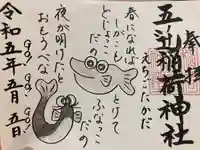 奉拝
五社稲荷神社
えちごだがだ
春になれば
しがこも とけて
どじょっこ だの
ふなっこ だの
夜が明けたと
おもうべな
令和五年五月五日